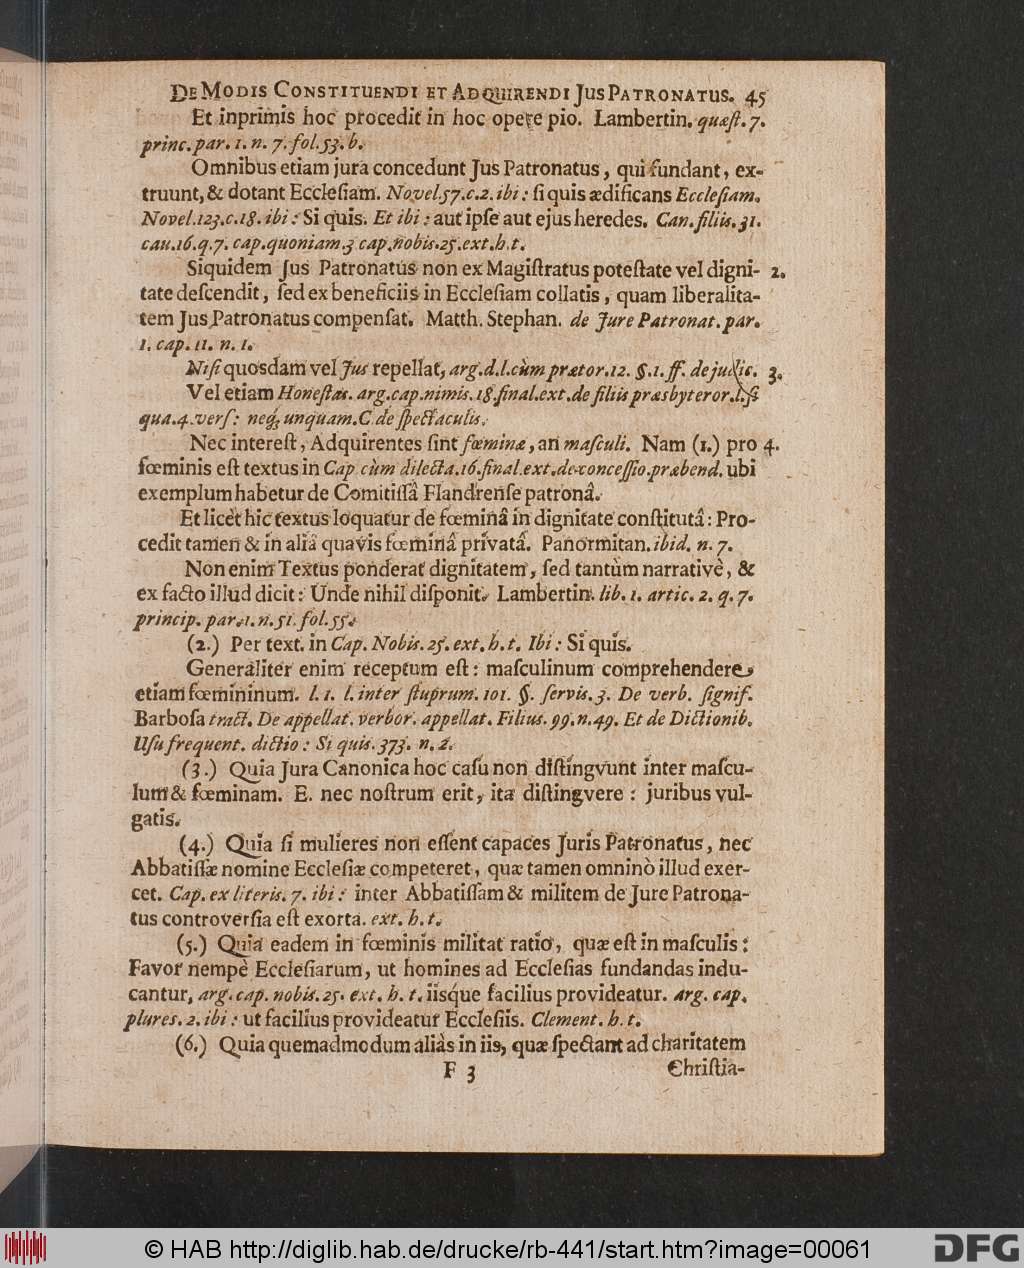 De Modis Constituendi et Adquirendi Jus Patronatus. 45
Et inprimis hoc procedit in hoc opere pio. Lambertin. quæſt. 7.
princ. par. 1. n. 7. fol. 53. b.
Omnibus etiam jura concedunt Jus Patronatus, qui fundant, ex-
truunt, & dotant Eccleſiam. Novel. 57. c. 2. ibi: ſi quis ædificans Eccleſiam.
Novel. 123. c. 18. ibi: Si quis. Et ibi: aut ipſe aut ejus heredes. Can. filiis. 31.
cau. 16. q. 7. cap. quoniam. 3 cap. nobis. 25. ext. h. t.
Siquidem Jus Patronatus non ex Magiſtratus poteſtate vel digni- 2.
tate deſcendit, ſed ex beneficiis in Eccleſiam collatis, quam liberalita-
tem Jus Patronatus compenſat. Matth. Stephan. de Jure Patronat. par.
1. cap. 11. n. 1.
Niſi quosdam vel Jus repellat, arg. d. l. cùm prætor. 12. §. 1. ff. de judic. 3.
Vel etiam Honeſtas. arg. cap. nimis. 18. final. ext. de filiis præsbyteror. l. ſi
qua. 4. verſ: neq; unquam. C de ſpectaculis.
Nec intereſt, Adquirentes ſint fœminæ, an maſculi. Nam (1.) pro 4.
fœminis eſt textus in Cap. cùm dilecta. 16. final. ext. de conceſſio. præbend. ubi
exemplum habetur de Comitiſſâ Flandrenſe patronâ.
Et licèt hic textus loquatur de fœminâ in dignitate conſtitutâ: Pro-
cedit tamen & in aliâ quavis fœminâ privatâ. Panormitan. ibid. n. 7.
Non enim Textus ponderat dignitatem, ſed tantùm narrativè, &
ex facto illud dicit: Unde nihil diſponit. Lambertin. lib. 1. artic. 2. q. 7.
princip. par. 1. n. 51. fol. 55.
(2.) Per text. in Cap. Nobis. 25. ext. h. t. Ibi: Si quis.
Generaliter enim receptum eſt: maſculinum comprehendere
etiam fœmininum. l. 1. l. inter ſtuprum. 101. §. ſervis. 3. De verb. ſignif.
Barboſa tract. De appellat. verbor. appellat. Filius. 99. n. 49. Et de Dictionib.
Uſu frequent. dictio: Si quis. 373. n. 2.
(3.) Quia Jura Canonica hoc caſu non diſtingvunt inter maſcu-
lum & fœminam. E. nec noſtrum erit, ita diſtingvere: juribus vul-
gatis.
(4.) Quia ſi mulieres non eſſent capaces Juris Patronatus, nec
Abbatiſſæ nomine Eccleſiæ competeret, quæ tamen omninò illud exer-
cet. Cap. ex literis. 7. ibi: inter Abbatiſſam & militem de Jure Patrona-
tus controverſia eſt exorta. ext. h. t.
(5.) Quia eadem in fœminis militat ratio, quæ eſt in maſculis:
Favor nempè Eccleſiarum, ut homines ad Eccleſias fundandas indu-
cantur, arg. cap. nobis. 25. ext. h. t. iisq́ue facilius provideatur. arg. cap.
plures. 2. ibi: ut facilius provideatur Eccleſiis. Clement. h. t.
(6.) Quia quemadmodum aliàs in iis, quæ ſpectant ad charitatem
F 3 Chriſtia-
© HAB http://diglib.hab.de/drucke/rb-441/start.htm?image=00061
DFG